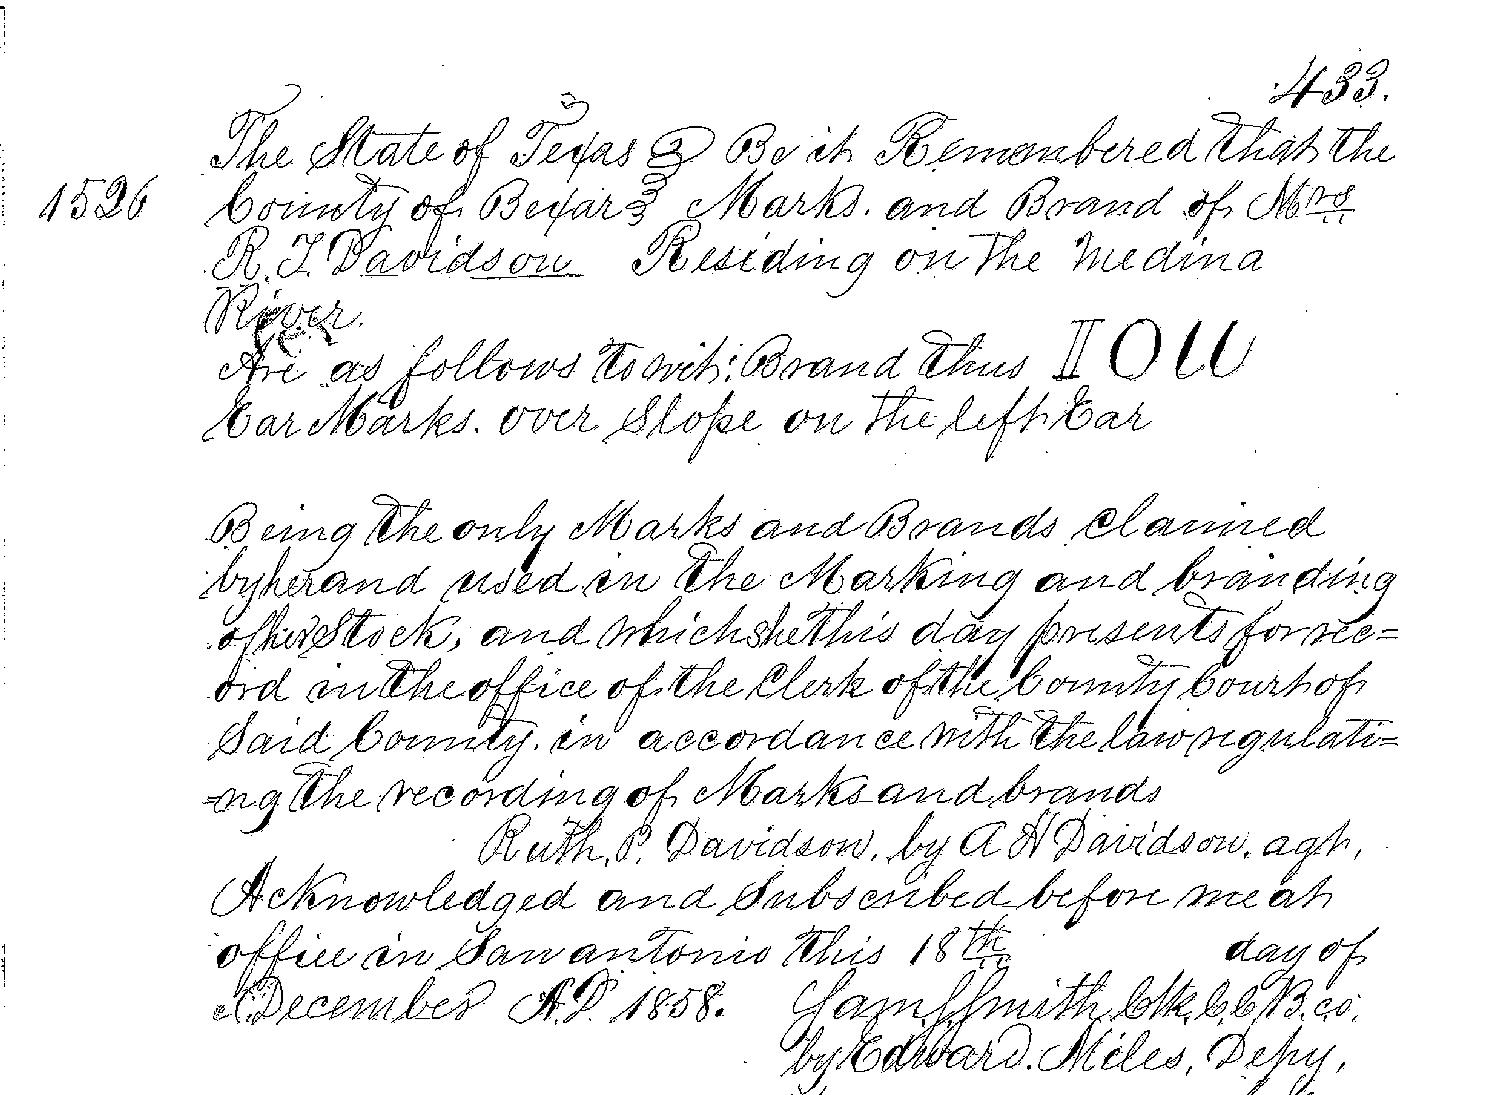 433.
The State of Texas } Be it Remembered that the
1526 County of Bexar } Marks. and Brand of Mrs
R. T. Davidson Residing on the Medina
River.
Are as follows to wit: Brand thus II O U
Ear Marks. over Slope on the left Ear
Being the only Marks and Brands claimed
by her and used in the Marking and branding
of her Stock, and which she this day presents for rec=
ord in the office of the Clerk of the County Court of
Said County. in accordance with the law regulati=
=ng the recording of Marks and brands
Ruth. P. Davidson. by A H Davidson. agt.
Acknowledged and Subscribed before me at
office in San antonio this 18th day of
December A.D. 1858. Sam S Smith Clk. C. C. B. co.
by Edward. Miles, Depy.